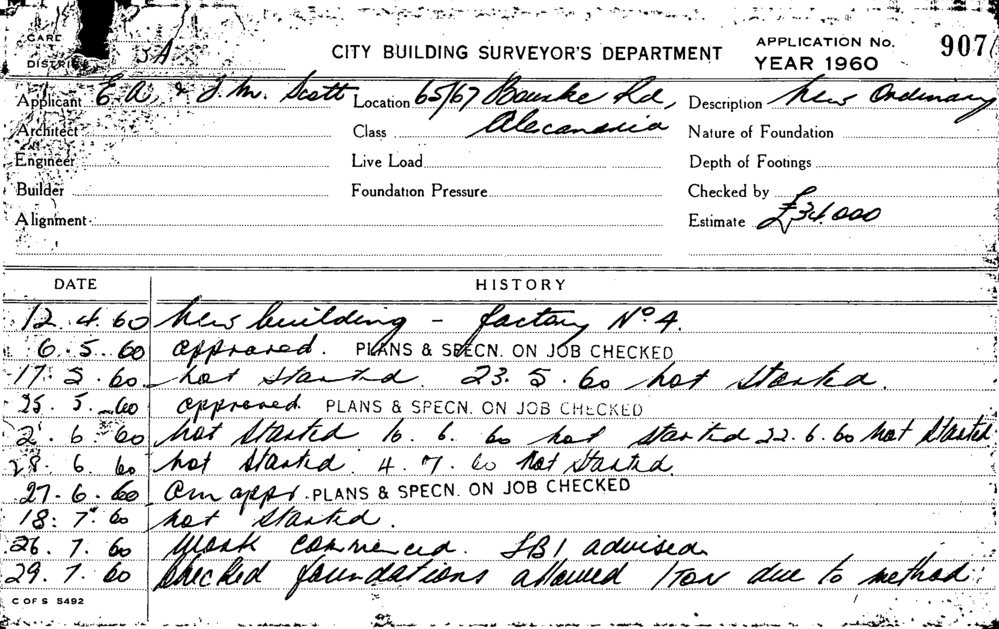 CARD
DISTRICT JA
CITY BUILDING SURVEYOR'S DEPARTMENT
APPLICATION No. 907
YEAR 1960
Applicant E. A. & J. M. Scott Location 65/67 Bourke Rd, Description New Ordinary
Architect Class Alexandria Nature of Foundation
Engineer Live Load Depth of Footings
Builder Foundation Pressure Checked by
Alignment Estimate £34.000
DATE HISTORY
12.4.60 New building - factory No 4.
6.5.60 approved. PLANS & SPECN. ON JOB CHECKED
17.5.60 not started. 23.5.60 not started.
25.5.60 approved. PLANS & SPECN. ON JOB CHECKED
2.6.60 not started 16.6.60 not started 22.6.60 not started.
28.6.60 not started. 4.7.60 Not started.
27.6.60 am appr. PLANS & SPECN. ON JOB CHECKED
18.7.60 not started.
26.7.60 Work commenced. SBI advised.
29.7.60 Checked foundations allowed 1 TON due to method
C OF S 5492